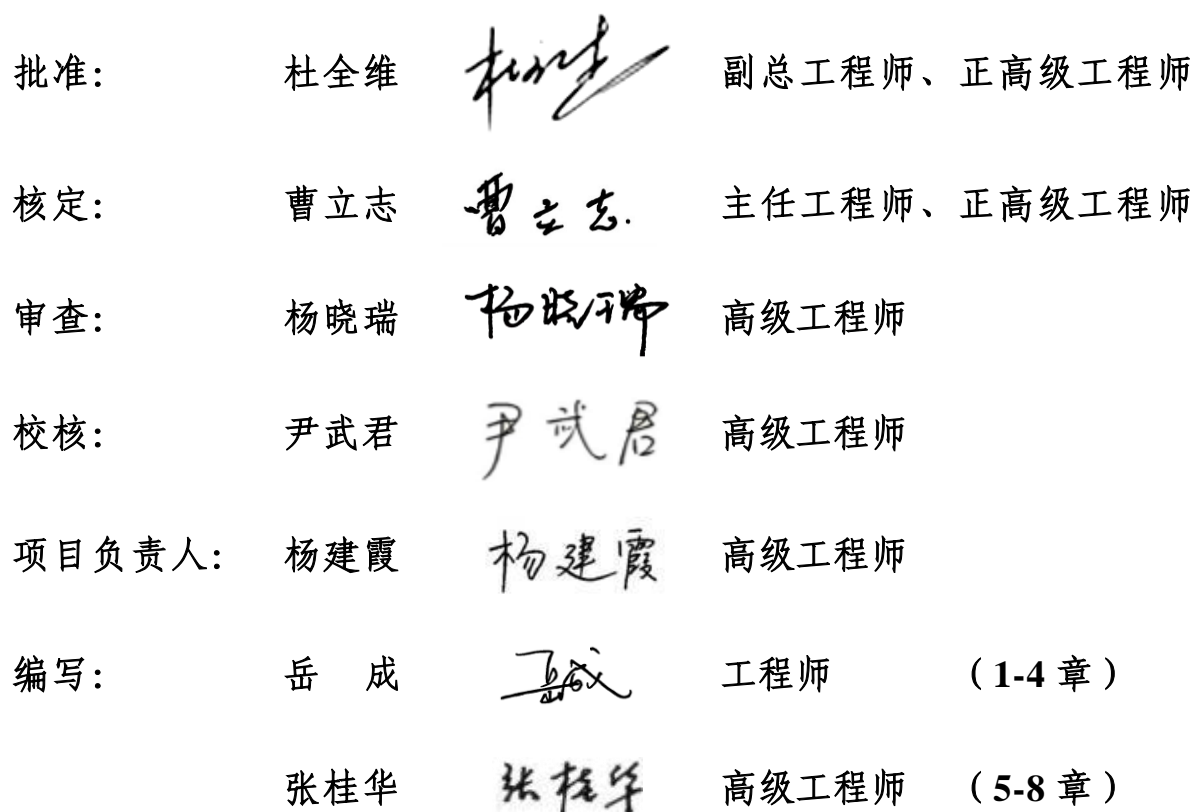 批准： 杜全维 杜全维 副总工程师、正高级工程师
核定： 曹立志 曹立志. 主任工程师、正高级工程师
审查： 杨晓瑞 杨晓瑞 高级工程师
校核： 尹武君 尹武君 高级工程师
项目负责人： 杨建霞 杨建霞 高级工程师
编写： 岳 成 岳成 工程师 （1-4 章）
张桂华 张桂华 高级工程师 （5-8 章）